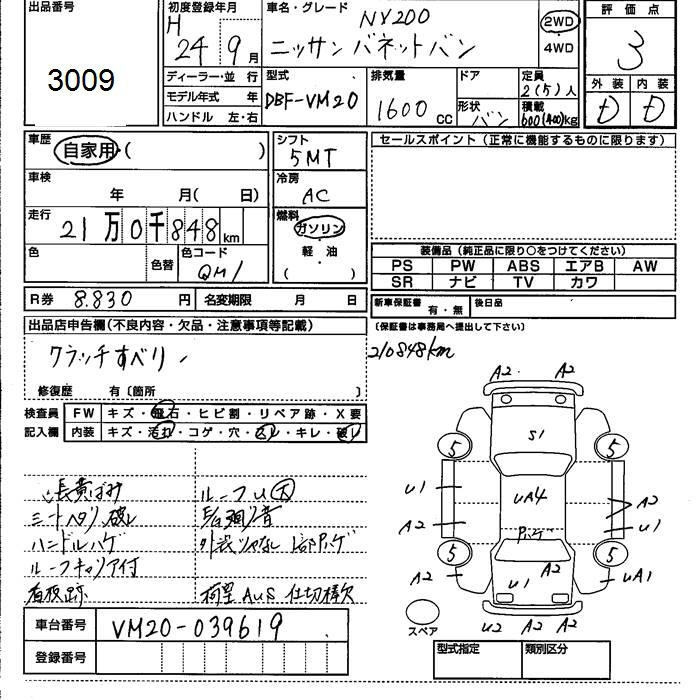 出品番号
3009
初度登録年月
H
24 9月
車名・グレード
NV200
ニッサンバネットバン
2WD
4WD
評価点
3
外装 内装
D D
ディーラー・並行
モデル年式 年
ハンドル 左・右
型式
DBF-VM20
排気量
1600 CC
ドア
形状
バン
定員
2(5)人
積載
600(400)kg
車歴
自家用・( )
車検
年 月( 日)
走行
21万0千848km
色
色替
色コード
QM1
シフト
5MT
冷房
AC
燃料
ガソリン
軽・油
( )
R券 8.830 円
名変期限 月 日
セールスポイント(正常に機能するものに限ります)
装備品(純正品に限り○をつけてください)
PS PW ABS エアB AW
SR ナビ TV カワ
新車保証書 有・無 後日品
(保証書は事務局へ提出して下さい)
出品店申告欄(不良内容・欠品・注意事項等記載)
クラッチすべり
修復歴 有〔箇所 〕
210848km
検査員
記入欄
FW キズ・飛石・ヒビ割・リペア跡・X要
内装 キズ・汚れ・コゲ・穴・スレ・キレ・破レ
シートヘタリ 破レ
ハンドルハゲ
ルーフキャリア付
看板跡
ルーフU大
荷室AUS 仕切棒欠
車台番号 VM20-039619
登録番号
A2 A2
S1
5 5
U1
UA4
A2
A2
U1
5 5
A2
U1
A2
UA1
スペア
U2 A2 A2
型式指定 類別区分